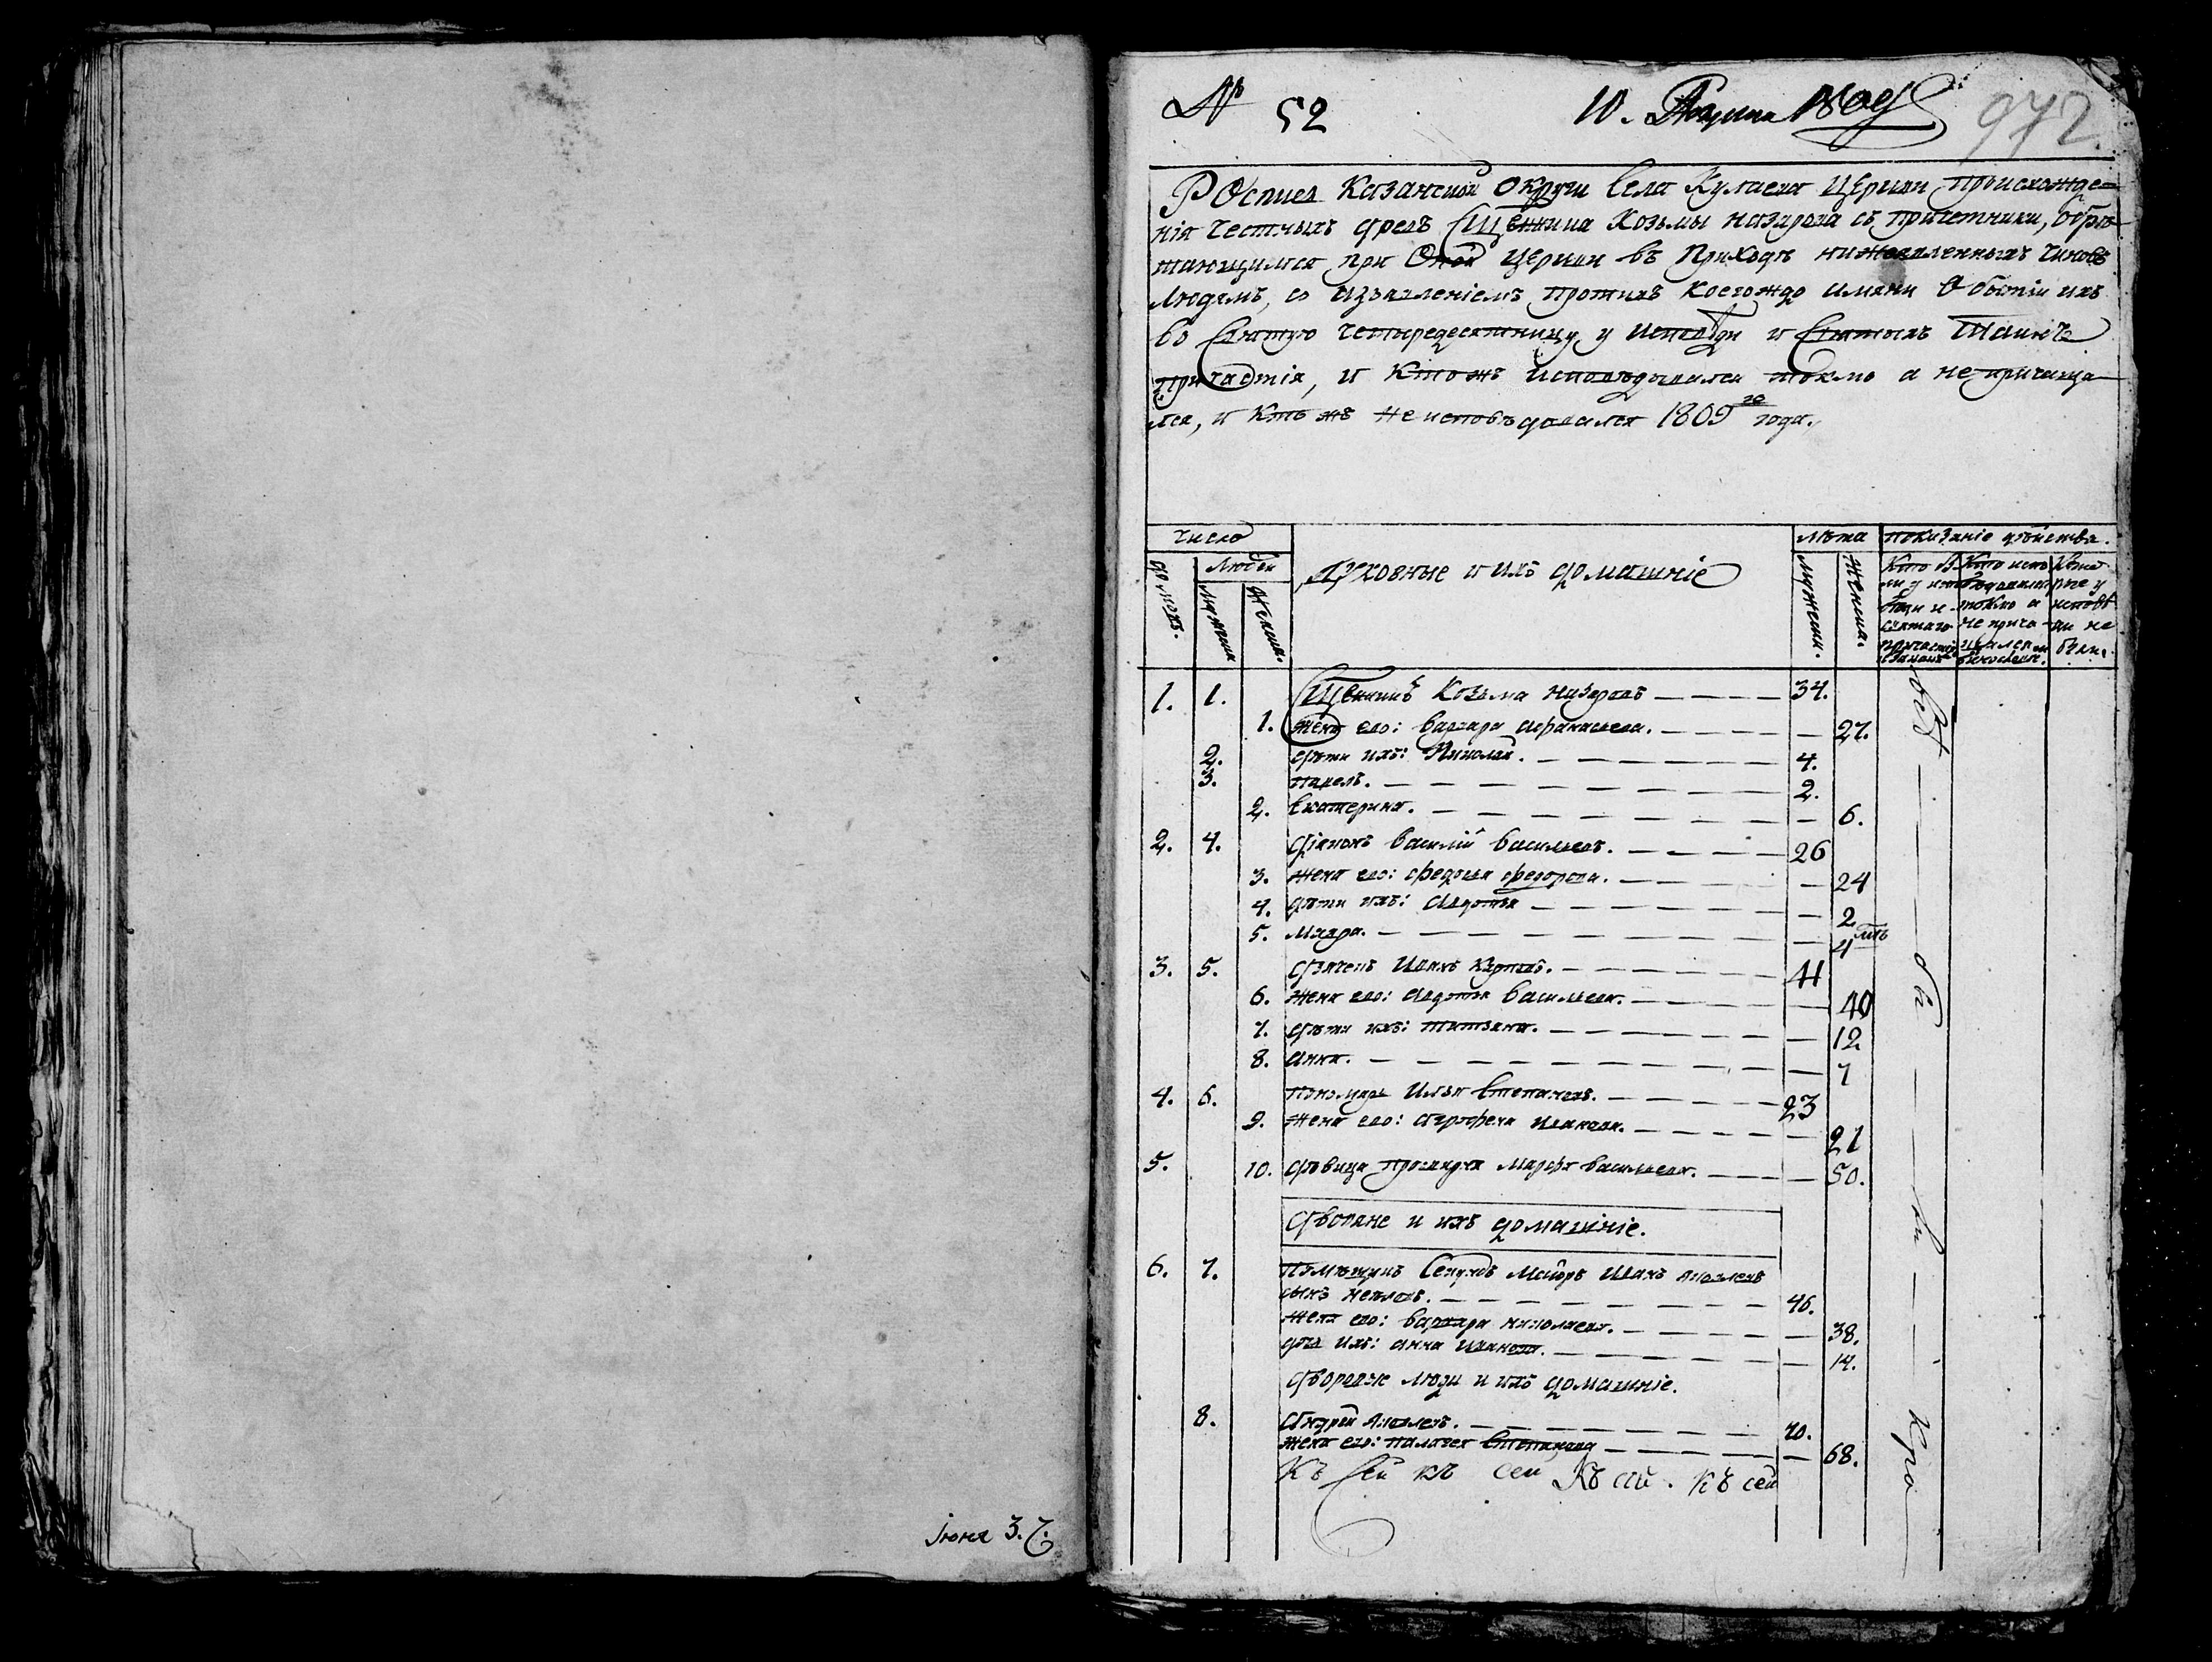 № 52
10. 1809
972.
Роспись Казанской округи Села Кулаева Церкви, Происхожде-
нія Честныхъ древъ Сщенника Козьмы Назарова съ причетники, обрѣ-
тающимся при оной Церкви въ Приходѣ нижеявленныхъ чиновъ
людямъ, со изъявленіемъ противъ коегождо имяни о бытіи ихъ
во Святую четыредесятницу у исповѣди и Святыхъ Таинъ
причастія, и ктожъ исповѣдывался токмо а не причаща-
лся, и кто жъ не исповѣдовался 1809го года.
Число
лѣта
показаніе дѣйства.
домовъ.
Людей
Духовные и ихъ домашніе
мужеск.
женска.
мужеска
женска.
Кто бы-
ли у испо-
вѣди и
святаго
причастія
Кто испо-
вѣдовались
токмо а
не прича-
щались
Кото-
рые у
исповѣ-
ди не
были.
1. 1. Сщенникъ Козьма Назаровъ — 34.
1. жена его: Варвара Афанасьева. — 27.
2. дѣти ихъ: Николай. — 4.
3. Павелъ. — 2.
2. Екатерина. — 6.
2. 4. Діаконъ Василій Васильевъ. — 26
3. жена его: Федосья Федорова. — 24
4. дѣти ихъ: Авдотья — 2
5. Мавра. — 4 мць
3. 5. Дьячекъ Иванъ Карповъ. — 41
6. жена его: Авдотья Васильева. — 40
7. дѣти ихъ: Татьяна. — 12
8. Анна. — 7
4. 6. Пономарь Илья Степановъ. — 23
9. жена его: Аграфена Иванова. — 21
5. 10. Вдовица Просвирня Марфа Васильева. — 50.
Дворяне и ихъ домашніе.
6. 7. Помѣщикъ Секундъ Маіоръ Иванъ Яковлевъ
сынъ Нееловъ. — 46.
жена его: Варвара Николаева. — 38.
дочь ихъ: Анна Иванова. — 14.
Дворовые люди и ихъ домашніе.
8. Андрей Яковлевъ. — 70.
жена его: Палагея Степанова — 68.
Къ сей къ сей Къ сей. Къ сей
всѣ — бы — ли — Кро
Іюня 3.